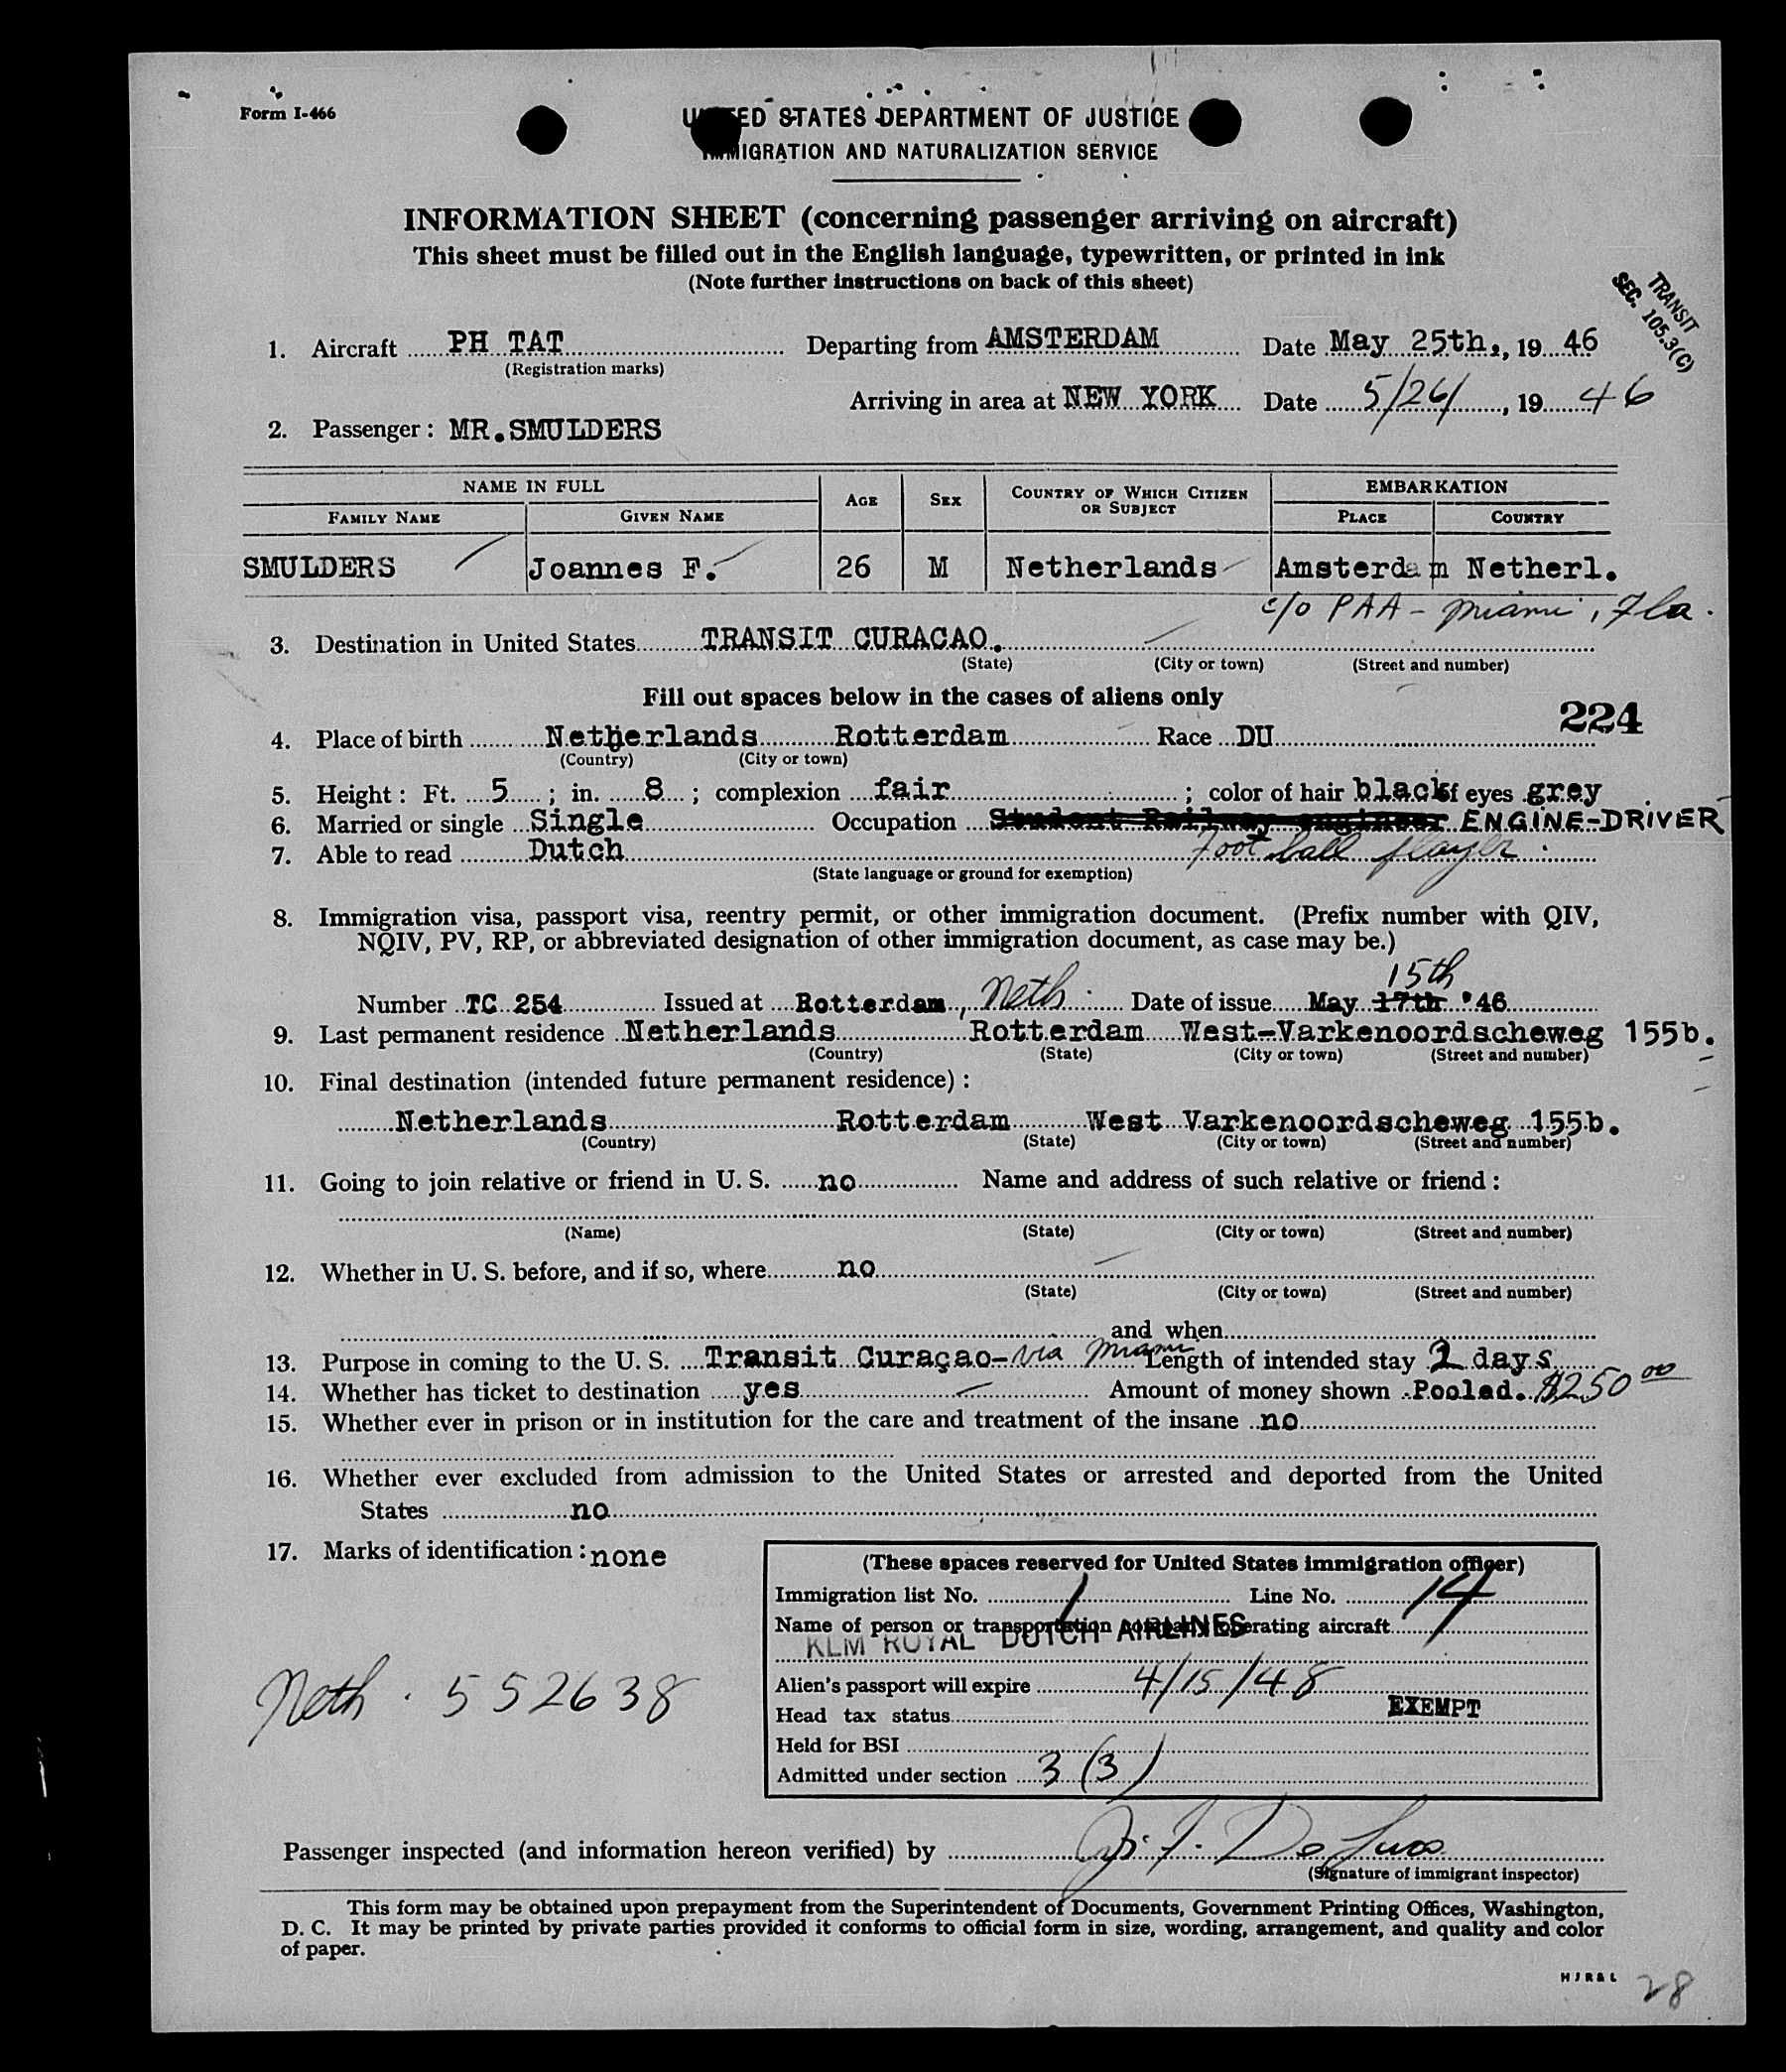 Form I-466
UNITED STATES DEPARTMENT OF JUSTICE
IMMIGRATION AND NATURALIZATION SERVICE
INFORMATION SHEET (concerning passenger arriving on aircraft)
This sheet must be filled out in the English language, typewritten, or printed in ink
(Note further instructions on back of this sheet)
TRANSIT
SEC. 105.3(C)
1. Aircraft PH TAT Departing from AMSTERDAM Date May 25th., 19 46
(Registration marks)
Arriving in area at NEW YORK Date 5/26/, 19 46
2. Passenger: MR.SMULDERS
NAME IN FULL AGE SEX COUNTRY OF WHICH CITIZEN OR SUBJECT EMBARKATION
FAMILY NAME GIVEN NAME PLACE COUNTRY
SMULDERS Joannes F. 26 M Netherlands Amsterdam Netherl.
c/o PAA - Miami, Fla.
3. Destination in United States TRANSIT CURACAO.
(State) (City or town) (Street and number)
Fill out spaces below in the cases of aliens only
224
4. Place of birth Netherlands Rotterdam Race DU
(Country) (City or town)
5. Height: Ft. 5; in. 8; complexion fair; color of hair black of eyes grey
6. Married or single Single Occupation Student Railway engineer ENGINE-DRIVER
7. Able to read Dutch Football player.
(State language or ground for exemption)
8. Immigration visa, passport visa, reentry permit, or other immigration document. (Prefix number with QIV,
NQIV, PV, RP, or abbreviated designation of other immigration document, as case may be.)
15th
Number TC 254 Issued at Rotterdam, Neth. Date of issue May 17th '46
9. Last permanent residence Netherlands Rotterdam West-Varkenoordscheweg 155b.
(Country) (State) (City or town) (Street and number)
10. Final destination (intended future permanent residence):
Netherlands Rotterdam West Varkenoordscheweg 155b.
(Country) (State) (City or town) (Street and number)
11. Going to join relative or friend in U. S. no Name and address of such relative or friend:
(Name) (State) (City or town) (Street and number)
12. Whether in U. S. before, and if so, where no
(State) (City or town) (Street and number)
and when
13. Purpose in coming to the U. S. Transit Curaçao-via Miami Length of intended stay 2 days
14. Whether has ticket to destination yes Amount of money shown Pooled. $250 00
15. Whether ever in prison or in institution for the care and treatment of the insane no
16. Whether ever excluded from admission to the United States or arrested and deported from the United
States no
17. Marks of identification: none
(These spaces reserved for United States immigration officer)
Immigration list No. 1 Line No. 14
Name of person or transportation company operating aircraft
KLM ROYAL DUTCH AIRLINES
Alien's passport will expire 4/15/48
Neth. 552638
Head tax status EXEMPT
Held for BSI
Admitted under section 3 (3)
Passenger inspected (and information hereon verified) by
(Signature of immigrant inspector)
This form may be obtained upon prepayment from the Superintendent of Documents, Government Printing Offices, Washington,
D. C. It may be printed by private parties provided it conforms to official form in size, wording, arrangement, and quality and color
of paper.
H J R & L
28